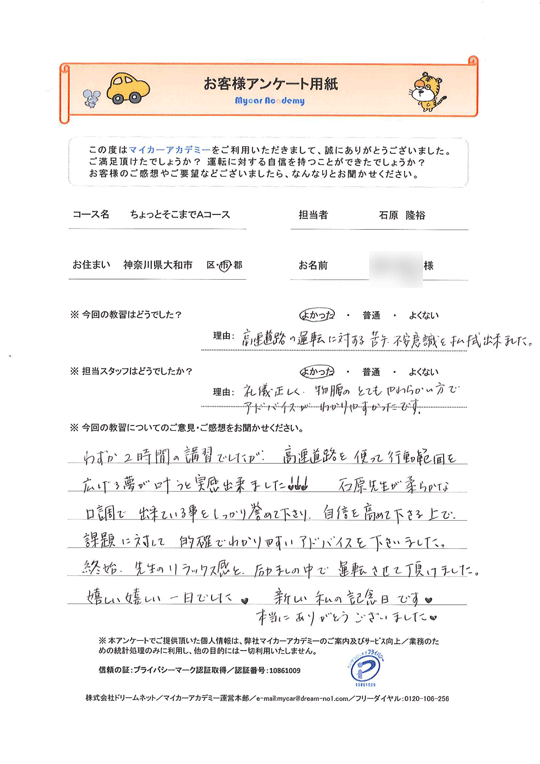 お客様アンケート用紙
Mycar Academy
この度はマイカーアカデミーをご利用いただきまして、誠にありがとうございました。
ご満足頂けたでしょうか？ 運転に対する自信を持つことができたでしょうか？
お客様のご感想やご要望などございましたら、なんなりとお聞かせください。
コース名 ちょっとそこまでAコース 担当者 石原 隆裕
お住まい 神奈川県大和市 区・市・郡 お名前 様
※ 今回の教習はどうでした？ よかった ・ 普通 ・ よくない
理由： 高速道路の運転に対する苦手、不安意識を払拭出来ました。
※ 担当スタッフはどうでしたか？ よかった ・ 普通 ・ よくない
理由： 礼儀正しく、物腰のとてもやわらかい方で
アドバイスがわかりやすかったです。
※ 今回の教習についてのご意見・ご感想をお聞かせください。
わずか2時間の講習でしたが、高速道路を使って行動範囲を
広げる夢が叶うと実感出来ました!!! 石原先生が柔らかな
口調で 出来ている事をしっかり誉めて下さり、自信を高めて下さる上で、
課題に対して 的確でわかりやすいアドバイスを下さいました。
終始、先生のリラックス感と、励ましの中で 運転させて頂けました。
嬉しい嬉しい 一日でした♥ 新しい私の記念日です♥
本当にありがとうございました♥
※ 本アンケートでご提供頂いた個人情報は、弊社マイカーアカデミーのご案内及びサービス向上／業務のた
めの統計処理のみに利用し、他の目的には一切利用いたしません。
信頼の証：プライバシーマーク認証取得／認証番号：10861009
株式会社ドリームネット／マイカーアカデミー運営本部／e-mail:mycar@dream-no1.com／フリーダイヤル：0120-106-256